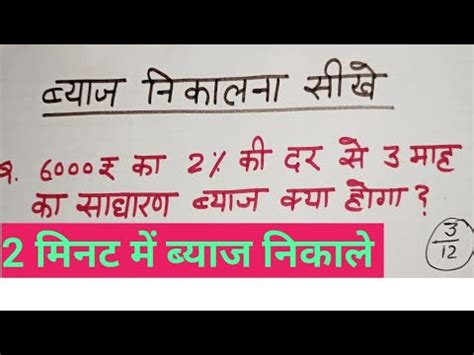 ब्याज निकालना सीखे
प्र. 6000₹ का 2% की दर से 3 माह
का साधारण ब्याज क्या होगा?
3/12
2 मिनट में ब्याज निकाले